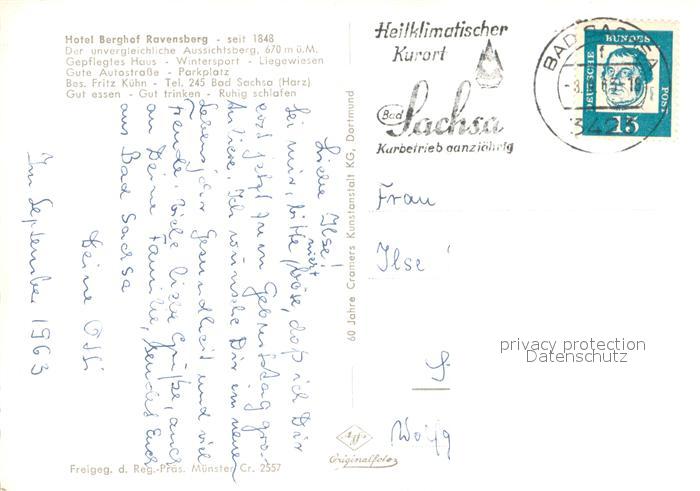 Hotel Berghof Ravensberg - seit 1848
Der unvergleichliche Aussichtsberg, 670 m ü.M.
Gepflegtes Haus - Wintersport - Liegewiesen
Gute Autostraße - Parkplatz
Bes. Fritz Kühn - Tel. 245 Bad Sachsa (Harz)
Gut essen - Gut trinken - Ruhig schlafen
Liebe Ilse!
Sei mir, bitte, nicht böse, daß ich Dir
erst jetzt zum Geburtstag gra-
tuliere. Ich wünsche Dir im neuen
Lebensj. der Gesundheit und viel
Freude. Viele liebe Grüße, auch
an Deine Familie, sendet Euch
aus Bad Sachsa
Deine
Im September 1963
60 Jahre Cramers Kunstanstalt KG, Dortmund
Heilklimatischer
Kurort
Bad
Sachsa
Kurbetrieb ganzjährig
BAD SACHSA
3423
DEUTSCHE BUNDESPOST
15
Frau
Ilse
privacy protection
Datenschutz
Agfa
Originalfoto
Freigeg. d. Reg.-Präs. Münster Cr. 2557